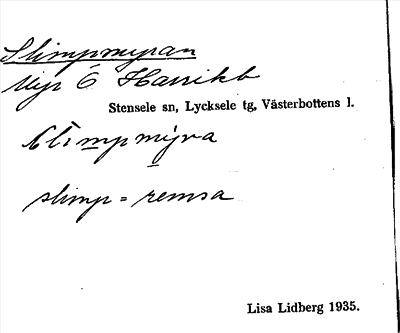 Slimpmyran
Myr Ö Harrikb
Stensele sn, Lycksele tg, Västerbottens l.
slimpmýra
slimp = remsa
Lisa Lidberg 1935.